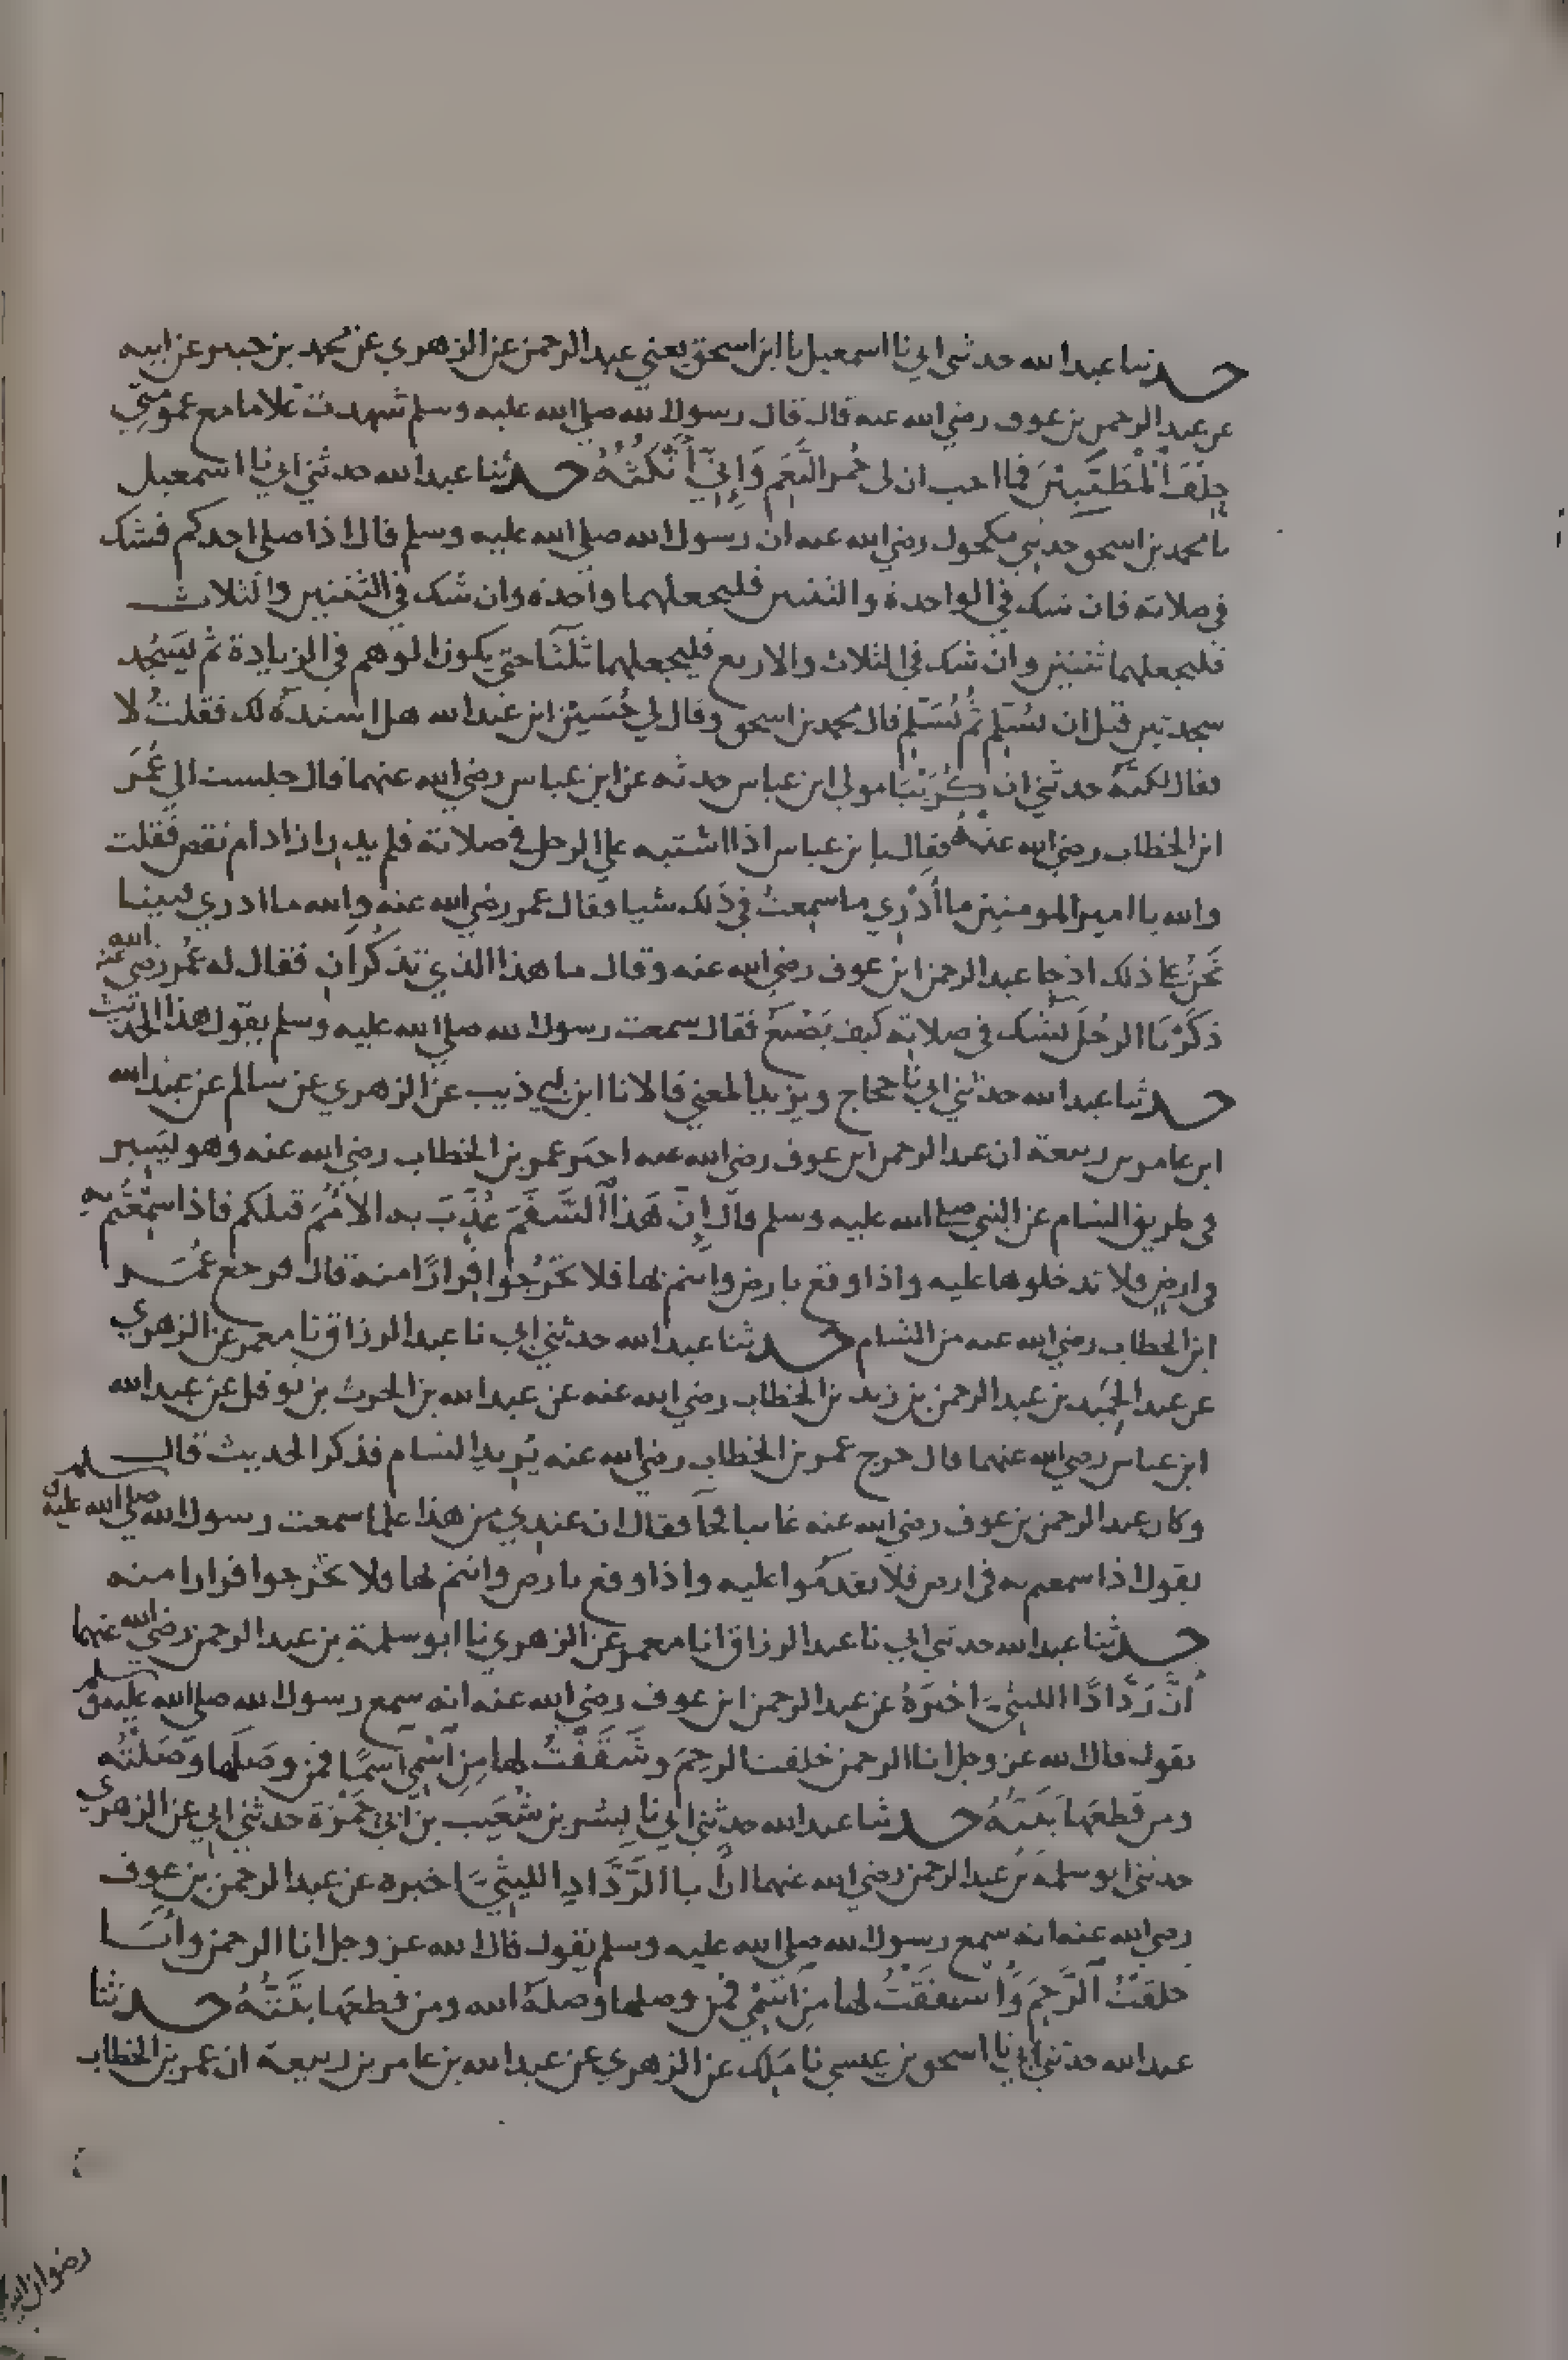 حدثنا عبد الله حدثني ابي نا اسمعيل نا ابن اسحق يعني عبد الرحمن عن الزهري عن محمد بن جبير عن ابيه
عن عبد الرحمن بن عوف رضي الله عنه قال قال رسول الله صلى الله عليه وسلم شهدت غلاما مع عمومتي
حِلْفَ الْمُطَيَّبِيْنَ فما احب ان لي حُمر النَّعَم وَإِنِّي أَنْكُثُهُ حدثنا عبد الله حدثني ابي نا اسمعيل
نا محمد بن اسحق حدثني مكحول رضي الله عنه ان رسول الله صلى الله عليه وسلم قال اذا صلى احدكم فشك
في صلاته فان شك في الواحدة والثنتين فليجعلهما واحدة وان شك في الثنتين والثلاث
فليجعلهما ثنتين وان شك في الثلاث والاربع فليجعلهما ثلثا حتى يكون الوهم في الزيادة ثم ليَسْجُد
سجدتين قبل ان يسَلِّم ثُم يُسَلِّم قال محمد بن اسحق وقال لي حُسَيْن ابن عبد الله هل اسنده لك فقلتُ لا
فقال لكنَّهُ حدثني ان كُرَيْبًا مولى ابن عباس حدثه عن ابن عباس رضي الله عنهما قال جلست الى عُمَرَ
ابن الخطاب رضي الله عنه فقال يا بن عباس اذا اشتبه على الرجل في صلاته فلم يدر ازاد ام نقص فقلت
والله يا امير المومنين ما أَدْري ما سمعتُ في ذلك شيا فقال عمر رضي الله عنه والله ما ادري فبينا
نَحْنُ على ذلك اذ جا عبد الرحمن ابن عوف رضي الله عنه وقال ما هذا الذي تذكُران فقال له عُمر رضي الله عنه
ذكَرْنا الرجُلَ يشُك في صلاته كيف يَصْنعُ فقال سمعت رسول الله صلى الله عليه وسلم يقول هذا الحديث
حدثنا عبد الله حدثني ابي نا حجاج ويزيد المعني قالا نا ابن ابي ذيب عن الزهري عن سالم عن عبد الله
ابن عامر بن ربيعة ان عبد الرحمن ابن عوف رضي الله عنه اخبر عمر بن الخطاب رضي الله عنه وهو يَسِير
في طريق الشام عن النبي صلى الله عليه وسلم قال إِنّ هَذا السَّقَمَ عُذِّبَ به الأُمَمُ قبلكم فاذا سَمِعْتُم به
في ارضٍ فلا تدخلوها عليه واذا وقع بارض وانتم بها فلا تَخْرُجوا فِرارًا منه قال فرجع عُمَر
ابن الخطاب رضي الله عنه من الشام حدثنا عبد الله حدثني ابي نا عبد الرزاق نا معمر عن الزهري
عن عبد الحَمِيد بن عبد الرحمن بن زيد بن الخطاب رضي الله عنه عن عبد الله بن الحرث بن نوفل عن عبد الله
ابن عباس رضي الله عنهما قال خرج عمر بن الخطاب رضي الله عنه يُريد الشام فذكر الحديث قال
وكان عبد الرحمن بن عوف رضي الله عنه غايبا فجآ فقال ان عندي من هذا علما سمعت رسول الله صلى الله عليه وسلم
يقول اذا سمعتم به في ارض فلا تقدمُوا عليه واذا وقع بارض وانتم بها فلا تخرجوا فرارا منه
حدثنا عبد الله حدثني ابي نا عبد الرزاق انا معمر عن الزهري نا ابو سلمة بن عبد الرحمن رضي الله عنهما
أَنَّ رَدَّادًا الليثيَّ اخبَرَهُ عن عبد الرحمن ابن عوف رضي الله عنه انه سمع رسول الله صلى الله عليه وسلم
يقول قال الله عز وجل انا الرحمن خلقت الرحِمَ وشَقَقْتُ لها مِن اسْمي اسمًا فمن وصَلها وصَلْتُه
ومن قطعَها بَتَتُّهُ حدثنا عبد الله حدثني ابي نا بِشر بن شُعَيب بن أبي حَمْزَة حدثني ابي عن الزهري
حدثني ابو سلمة بن عبد الرحمن رضي الله عنهما انَّ ابا الرَّدَّادِ الليثيَّ اخبره عن عبد الرحمن بن عوف
رضي الله عنه انه سمع رسول الله صلى الله عليه وسلم يقول قال الله عز وجل انا الرحمن وانا
خلقتُ الرَّحِمَ وَاشتققْتُ لها مِن اسْمِي فمن وصلها وصلهُ الله ومن قطعَها بَتَتُّهُ حدثنا
عبد الله حدثني ابي نا اسحق بن عيسى نا مَلِك عن الزهري عن عبد الله بن عامر بن ربيعة ان عمر بن الخطاب
رضوان الله